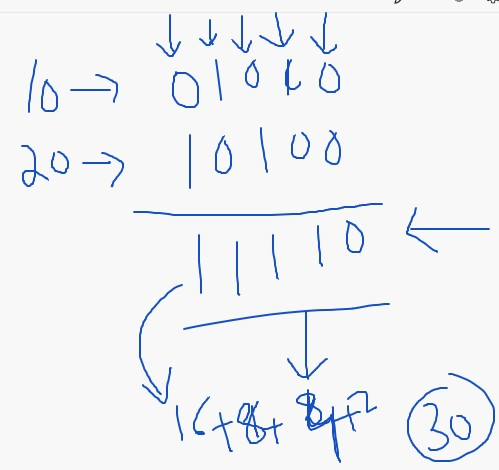 10 → 01010
20 → 10100
11110
16+8+4+2 30